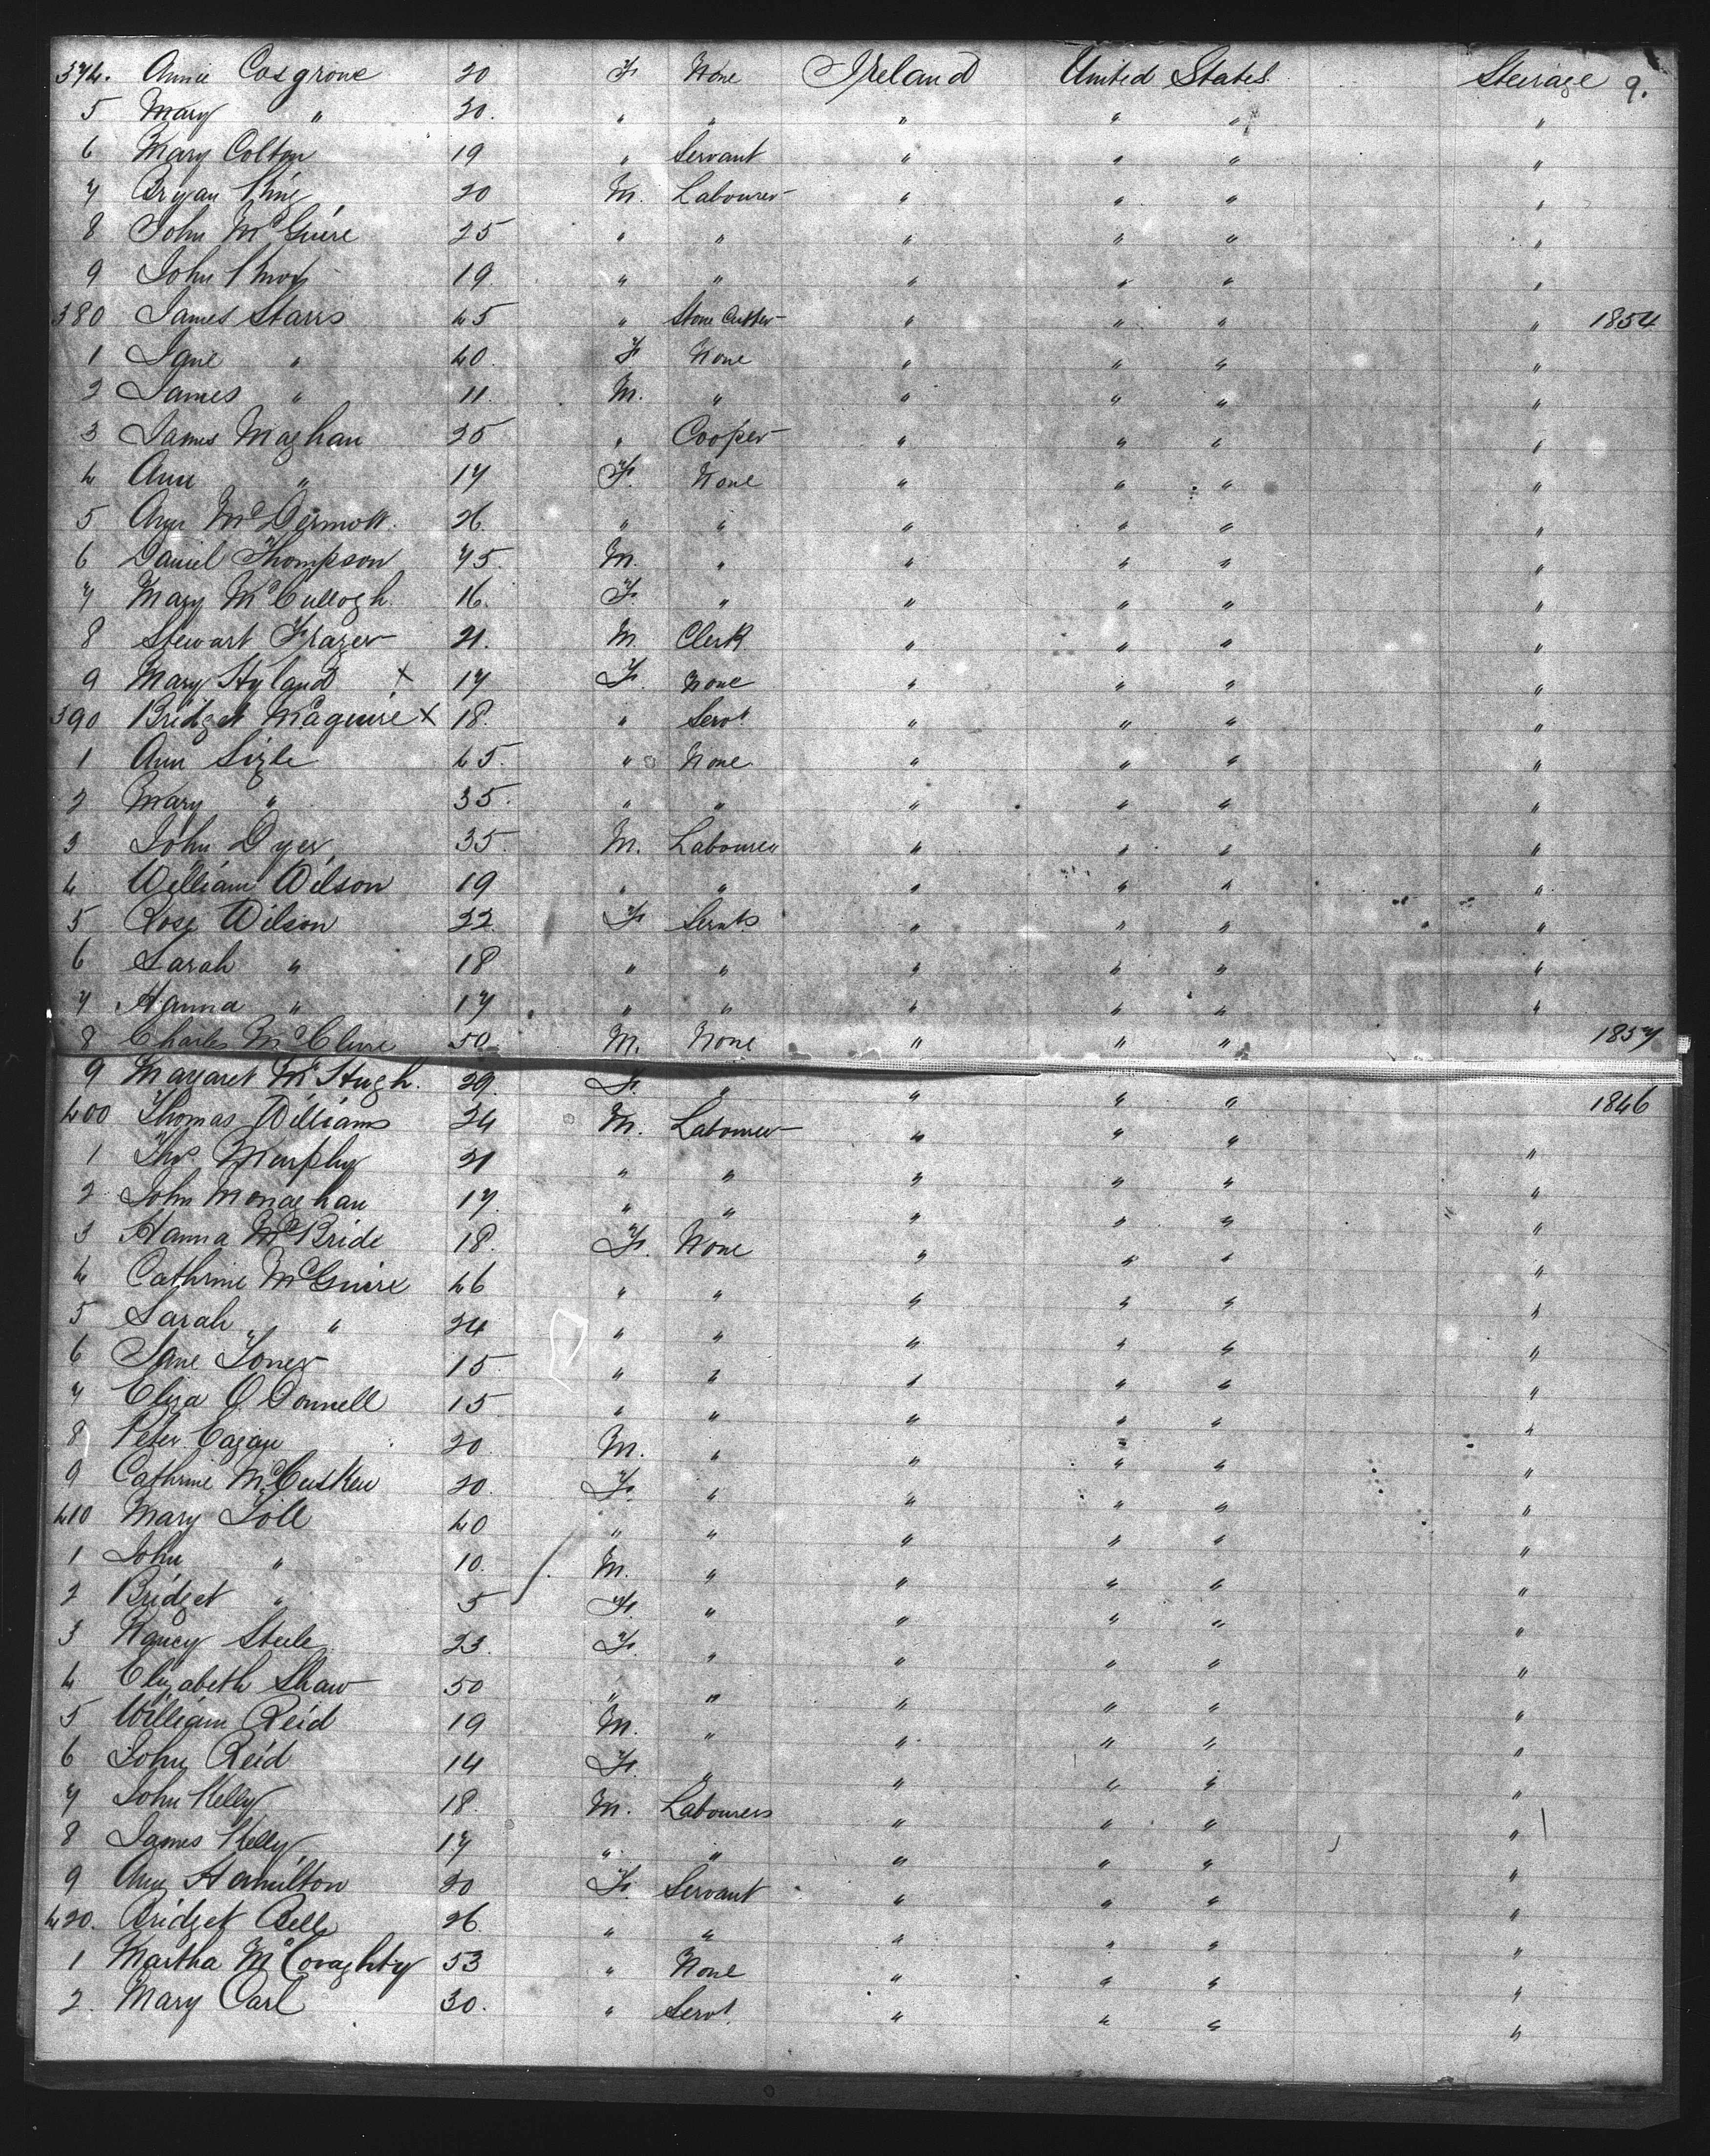 374. Annie Cosgrove 20 F. None Ireland United States Steerage 9.
5 Mary " 20. " " " " " "
6 Mary Colton 19 " Servant " " " "
7 Bryan King 20 M. Labourer " " " "
8 John McGuire 25 " " " " " "
9 John 19. " " " " " "
380 James Starrs 45 " Stone Cutter " " " " 1854
1 Jane " 40. F None " " " "
2 James " 11. M. " " " " "
3 James Maghan 25 " Cooper " " " "
4 Ann " 17 F. None " " " "
5 Ann McDermott. 26. " " " " " "
6 Daniel Thompson 75. M. " " " " "
7 Mary McCullogh. 16. F. " " " " "
8 Stewart Frazer 21. M. Clerk " " " "
9 Mary Hyland x 17 F. None " " " "
390 Bridget Maguire x 18. " Servt " " " "
1 Ann Sizle 45. " None " " " "
2 Mary " 35. " " " " " "
3 John Dyer 35. M. Labourer " " " "
4 William Wilson 19 " " " " " "
5 Rose Wilson 22 F Servts " " " "
6 Sarah " 18 " " " " " "
7 Hanna " 17 " " " " " "
8 Charles McClure 50. M. None " " " 1857
9 Margaret McHugh. 29. F. " " " "
400 Thomas Williams 24 M. Labourer " " " 1846
1 Thos. Murphy 21 " " " " " "
2 John Monaghan 17. " " " " " "
3 Hanna McBride 18. F. None " " " "
4 Cathrine McGuire 46 " " " " " "
5 Sarah " " 24 " " " " " "
6 Jane Toner 15. " " " " " "
7 Eliza O'Donnell 15 " " " " " "
8 Peter Eagan 20. M. " " " " "
9 Cathrine McCusker 20. F. " " " " "
410 Mary Toll 40 " " " " " "
1 John " 10. M. " " " " "
2 Bridget " 5 F. " " " " "
3 Nancy Steele 23. F. " " " " "
4 Elizabeth Shaw 50 " " " " " "
5 William Reid 19 M. " " " " "
6 John Reid 14 F. " " " " "
7 John Kelly 18. M. Labourers " " " "
8 James Kelly 17 " " " " " "
9 Ann Hamilton 20 F. Servant " " " "
420. Bridget Bell 26. " " " " " "
1 Martha McConaghty 53 " None " " " "
2. Mary Carl 30. " Servt. " " " "